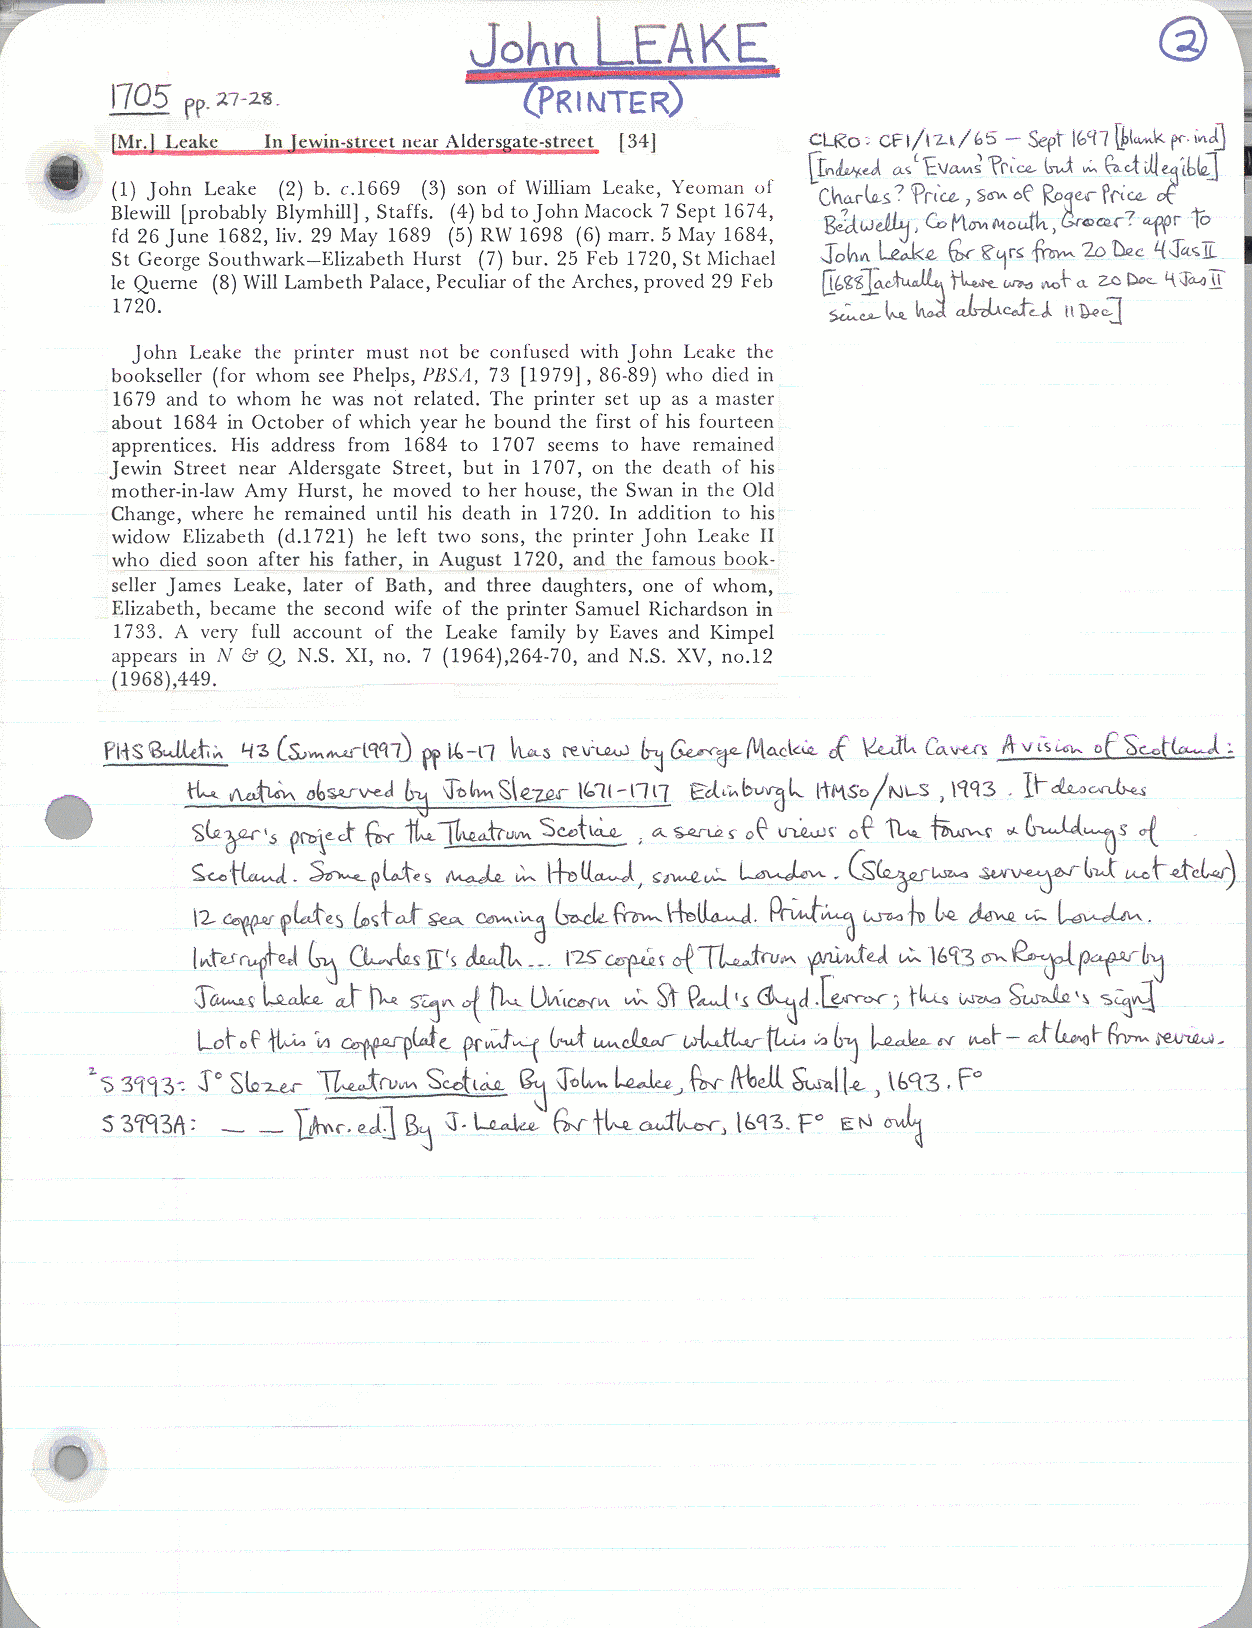 John LEAKE
2
(PRINTER)
1705 pp. 27-28.
[Mr.] Leake In Jewin-street near Aldersgate-street [34]
(1) John Leake (2) b. c.1669 (3) son of William Leake, Yeoman of
Blewill [probably Blymhill], Staffs. (4) bd to John Macock 7 Sept 1674,
fd 26 June 1682, liv. 29 May 1689 (5) RW 1698 (6) marr. 5 May 1684,
St George Southwark—Elizabeth Hurst (7) bur. 25 Feb 1720, St Michael
le Querne (8) Will Lambeth Palace, Peculiar of the Arches, proved 29 Feb
1720.
John Leake the printer must not be confused with John Leake the
bookseller (for whom see Phelps, PBSA, 73 [1979], 86-89) who died in
1679 and to whom he was not related. The printer set up as a master
about 1684 in October of which year he bound the first of his fourteen
apprentices. His address from 1684 to 1707 seems to have remained
Jewin Street near Aldersgate Street, but in 1707, on the death of his
mother-in-law Amy Hurst, he moved to her house, the Swan in the Old
Change, where he remained until his death in 1720. In addition to his
widow Elizabeth (d.1721) he left two sons, the printer John Leake II
who died soon after his father, in August 1720, and the famous book-
seller James Leake, later of Bath, and three daughters, one of whom,
Elizabeth, became the second wife of the printer Samuel Richardson in
1733. A very full account of the Leake family by Eaves and Kimpel
appears in N & Q, N.S. XI, no. 7 (1964),264-70, and N.S. XV, no.12
(1968),449.
CLRO: CF1/121/65 — Sept 1697 [blank pr. ind]
[Indexed as 'Evans' Price but in fact illegible]
Charles? Price, son of Roger Price of
Bedwelly, Co Monmouth, Grocer? appr to
John Leake for 8 yrs from 20 Dec 4 Jas II
[1688] [actually there was not a 20 Dec 4 Jas II
since he had abdicated 11 Dec]
PHS Bulletin 43 (Summer 1997) pp 16-17 has review by George Mackie of Keith Cavers A vision of Scotland:
the nation observed by John Slezer 1671-1717 Edinburgh HMSO/NLS, 1993. It describes
Slezer's project for the Theatrum Scotiae, a series of views of the towns & buildings of
Scotland. Some plates made in Holland, some in London. (Slezer was surveyor but not etcher)
12 copper plates lost at sea coming back from Holland. Printing was to be done in London.
Interrupted by Charles II's death... 125 copies of Theatrum printed in 1693 on Royal paper by
James Leake at the sign of the Unicorn in St Paul's Chyd. [error; this was Swale's sign]
Lot of this is copperplate printing but unclear whether this is by Leake or not – at least from review.
²S 3993: Jº Slezer Theatrum Scotiae By John Leake, for Abell Swalle, 1693. Fº
S 3993A: — — [Anr. ed.] By J. Leake for the author, 1693. Fº EN only